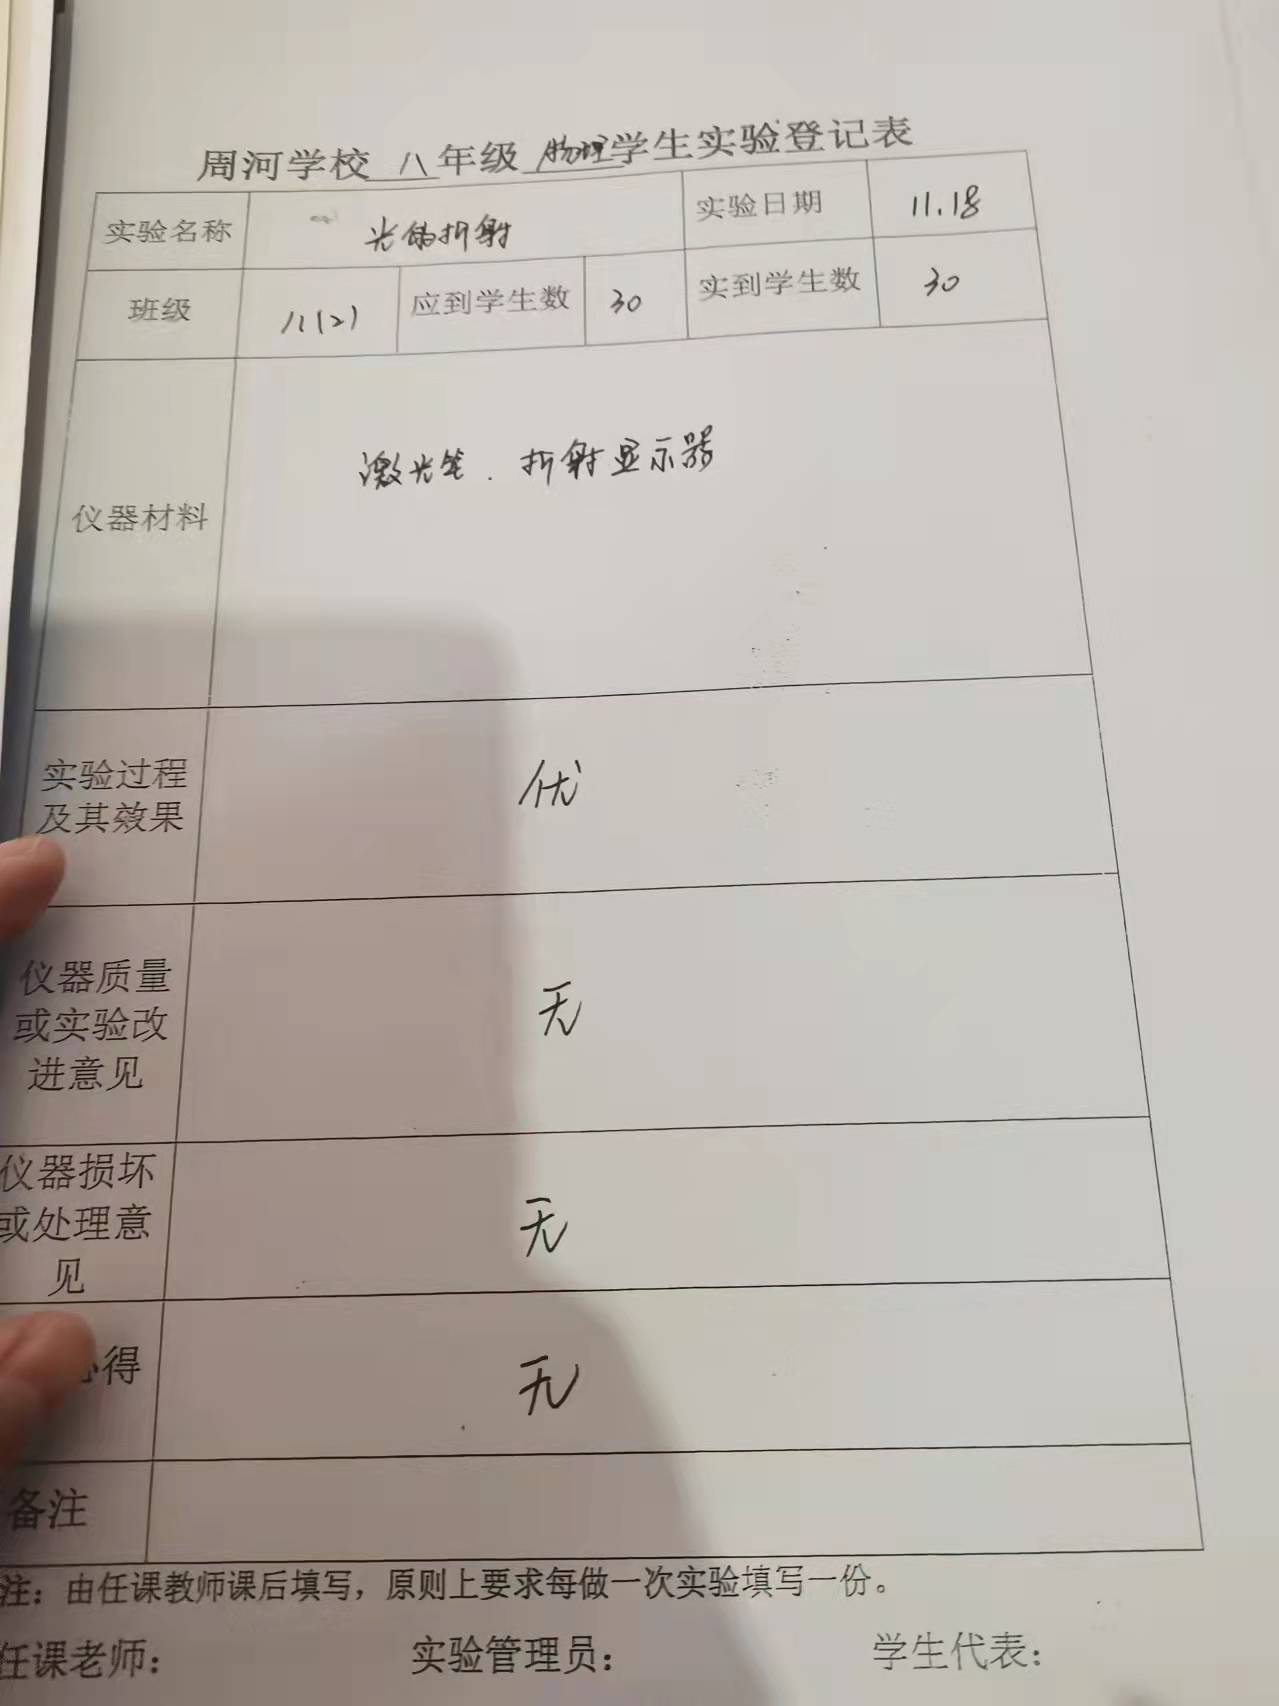 周河学校 八 年级 物理 学生实验登记表
实验名称 光的折射 实验日期 11.18
班级 八(2) 应到学生数 30 实到学生数 30
仪器材料 激光笔. 折射显示器
实验过程
及其效果
优
仪器质量
或实验改
进意见
无
仪器损坏
或处理意
见
无
心得
无
备注
注：由任课教师课后填写，原则上要求每做一次实验填写一份。
任课老师： 实验管理员： 学生代表：